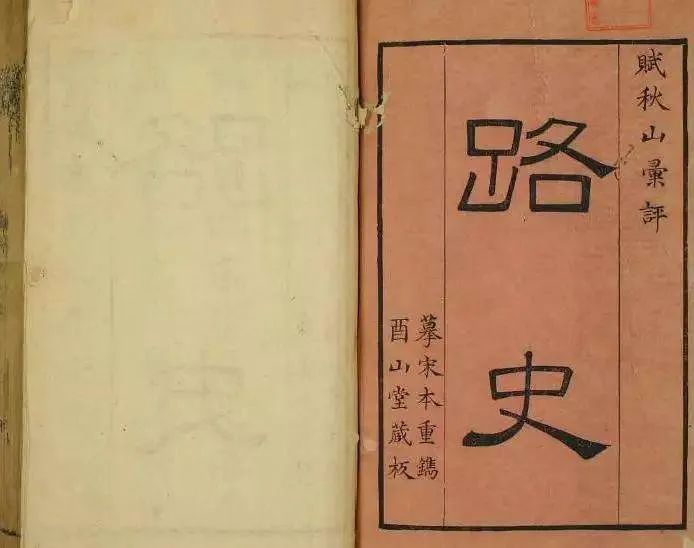 賦秋山彚評
路史
摹宋本重鐫
酉山堂藏板